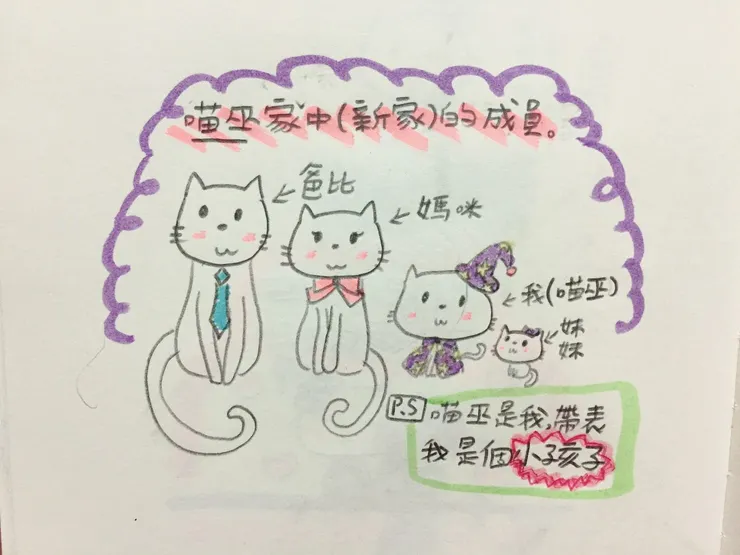 喵巫家中(新家)的成員。
爸比
媽咪
我(喵巫)
妹
妹
P.S 喵巫是我,帶表
我是個小孩子